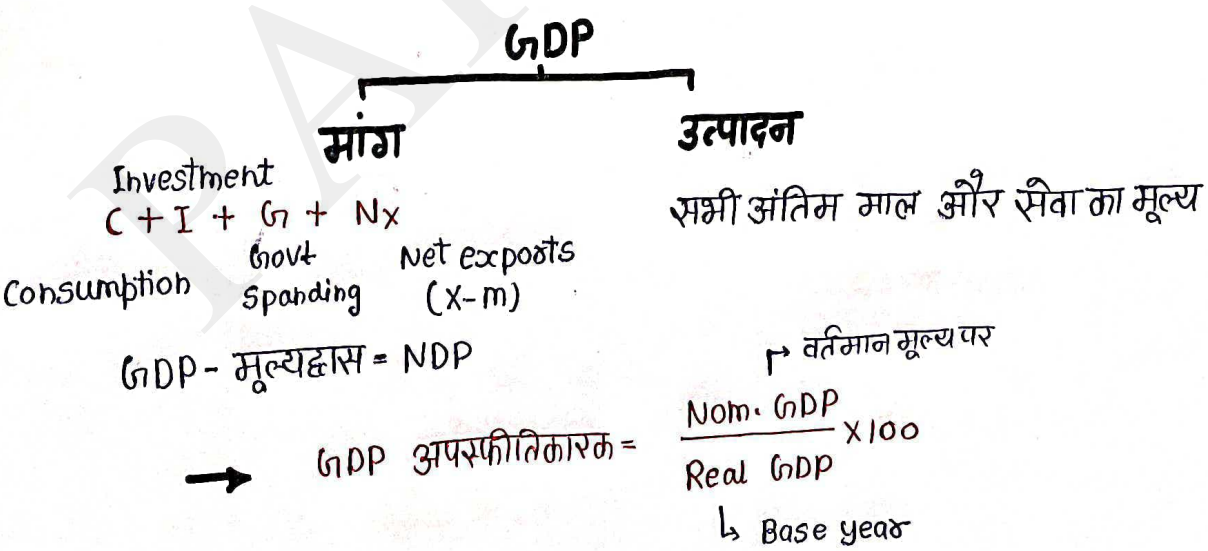 GDP
मांग
उत्पादन
Investment
C + I + G + Nx
Consumption
Govt Spanding
Net exports (X-m)
सभी अंतिम माल और सेवा का मूल्य
GDP - मूल्यह्रास = NDP
→ वर्तमान मूल्य पर
→ GDP अपस्फीतिकारक = Nom. GDP / Real GDP X100
↳ Base year